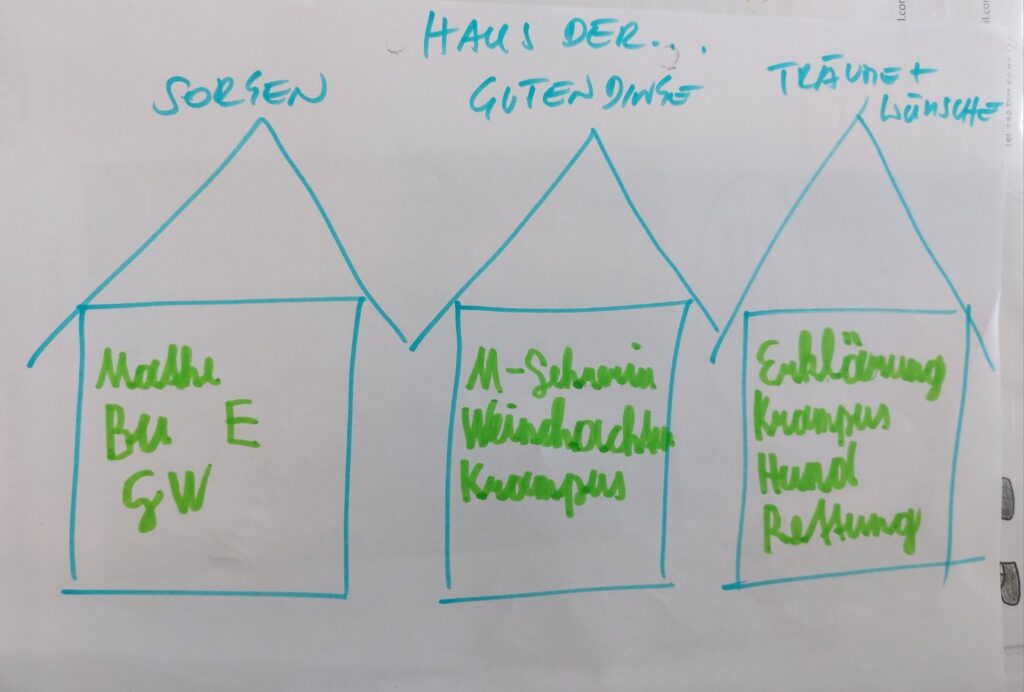 HAUS DER...
SORGEN
GUTEN DINGE
TRÄUME +
WÜNSCHE
Mathe
BU E
GW
M-Lehrerin
Weinchachten
Krampus
Erkläerung
Krampus
Hund
Rettung